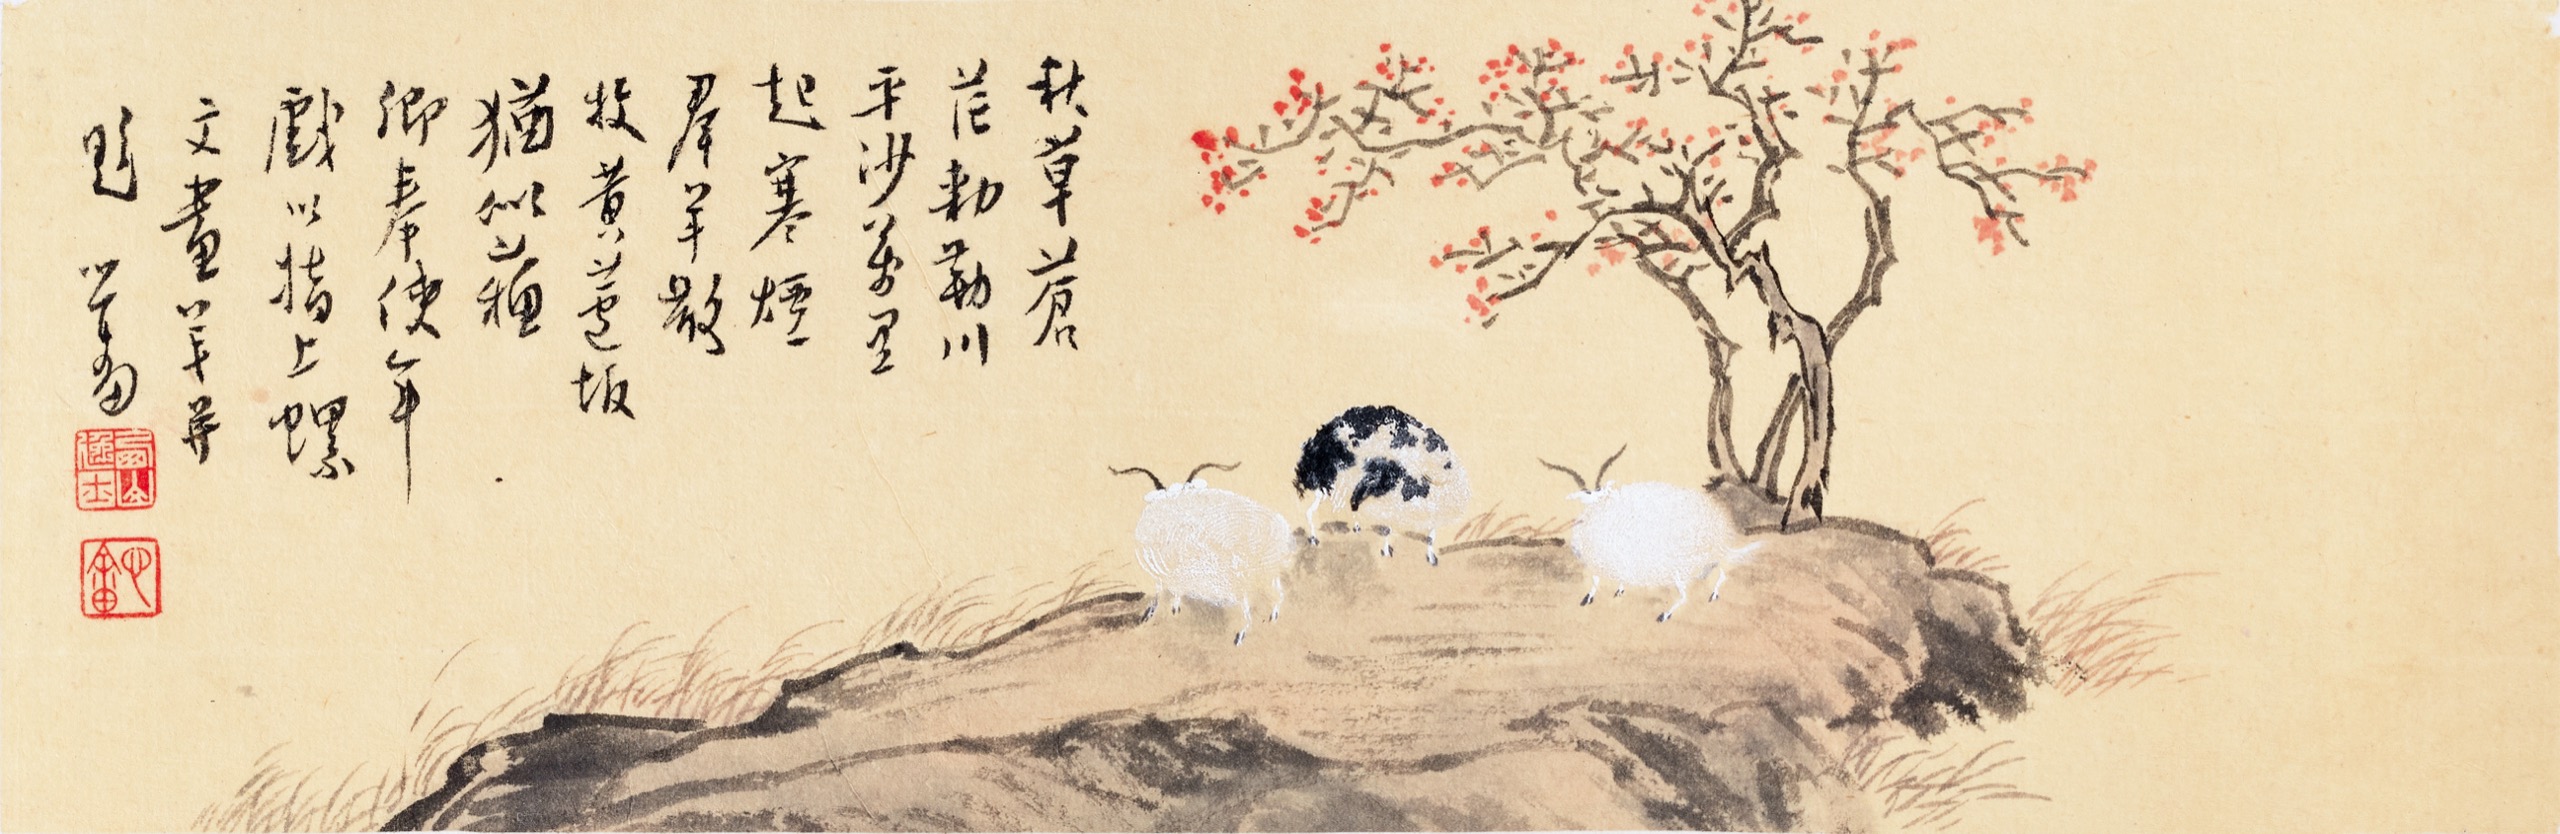 秋草蒼
茫勅勒川
平沙萬里
起寒煙
羣羊散
牧黃蘆坂
猶似蘇
卿奉使年
戲以指上螺
文畫羊并
題 心畬